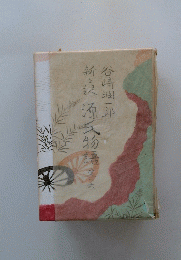 谷崎潤一郎
新訳 源氏物語